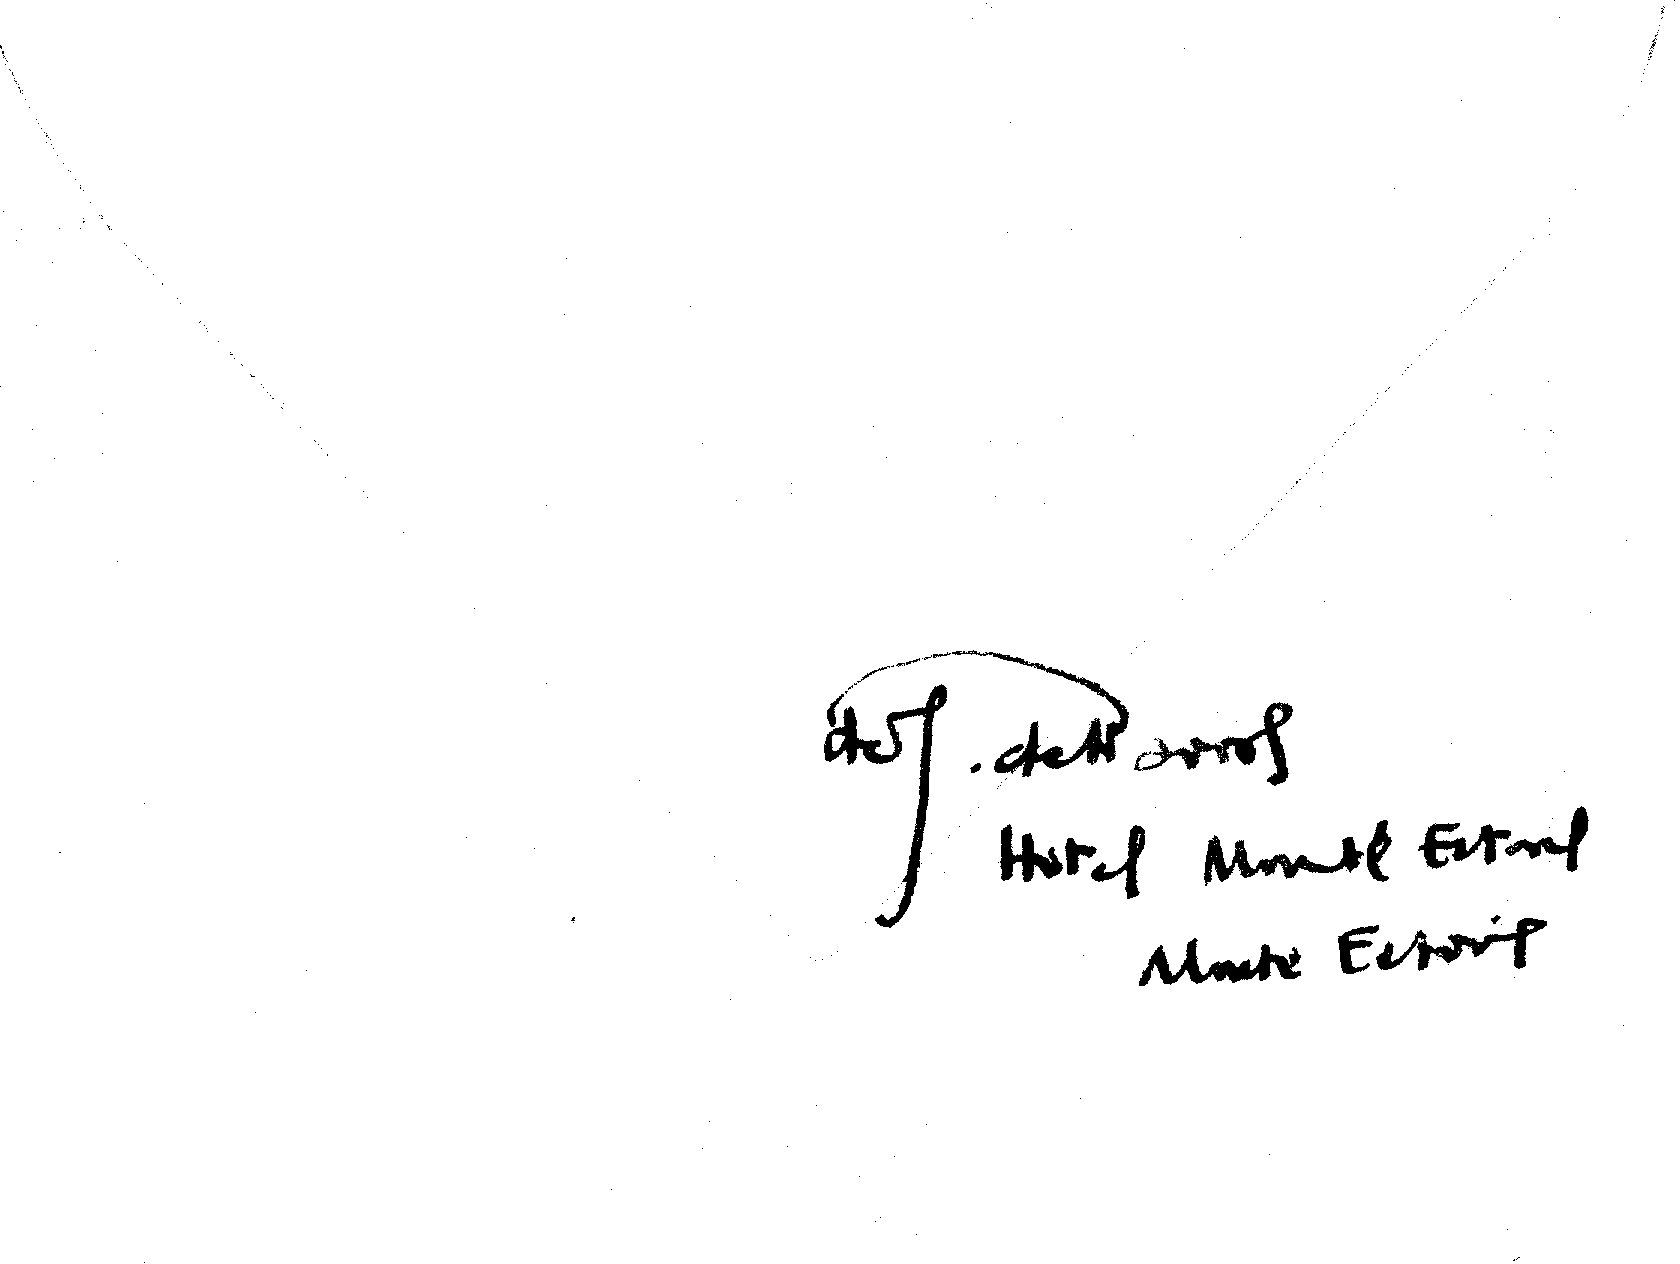 de Barros
Hotel Monte Estoril
Monte Estoril